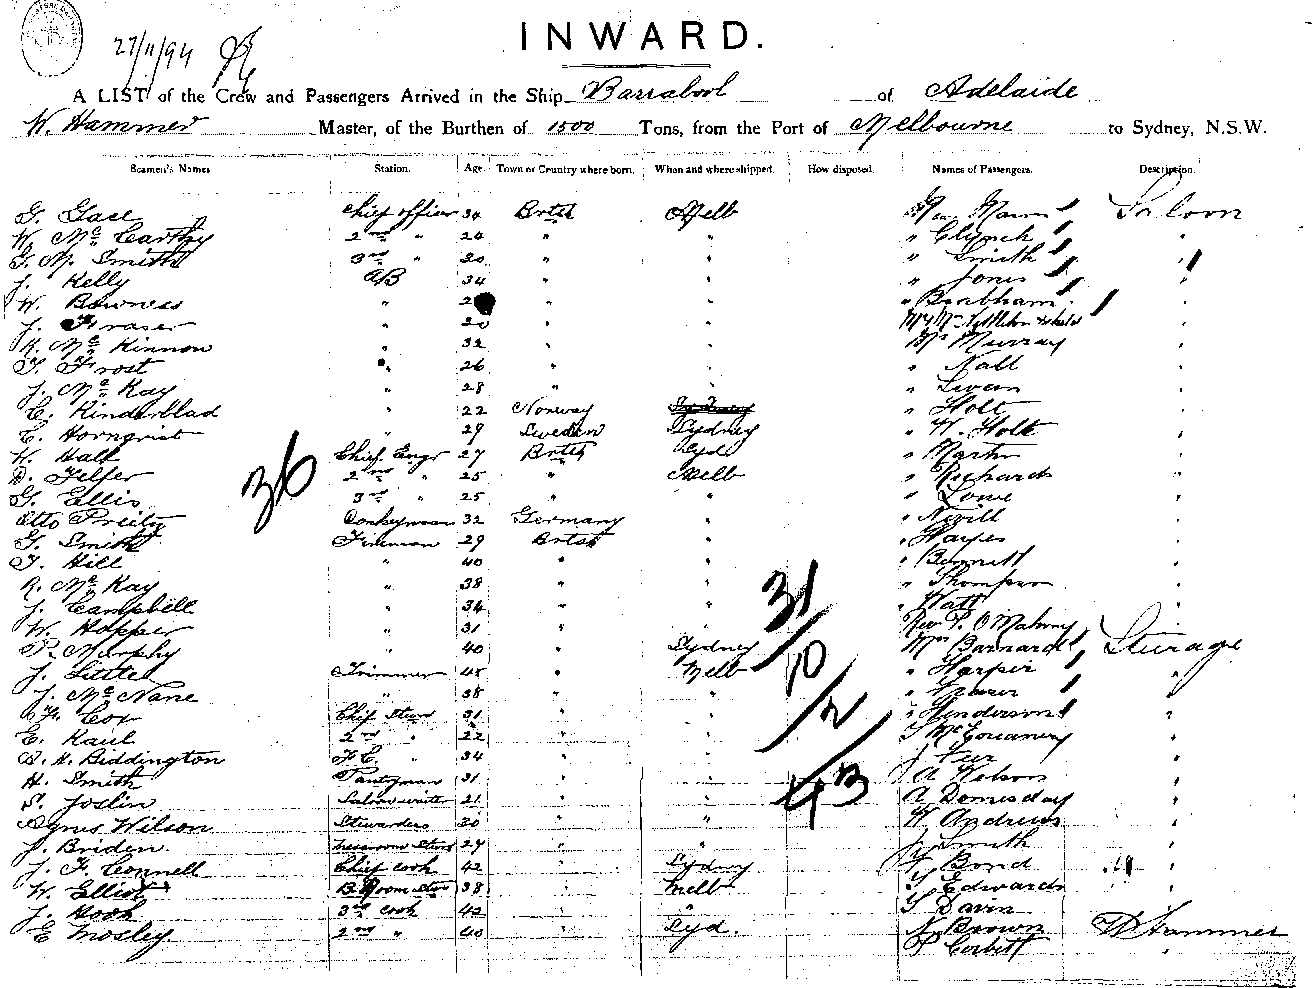 27/11/94
INWARD.
A LIST of the Crew and Passengers Arrived in the Ship Barrabool of Adelaide
W. Hammer Master, of the Burthen of 1500 Tons, from the Port of Melbourne to Sydney, N.S.W.
Seamen's Names Station. Age. Town or Country where born. When and where shipped. How disposed. Names of Passengers. Description.
Chief officer 34 Brtsh Melb Mann Saloon
W. Mc Carthy 2nd " 24 " " " Clynch "
Smith 3rd " 20 " " " Smith "
J. Kelly AB 34 " " " Jones "
W. Bowness " " " " Brabham "
J. Fraser " 20 " "
R. Mc Kinnon " 32 " " Mrs Murray "
T. Frost " 26 " " " Nall "
J. Mc Kay " 28 " " "
C. Kinderblad " 22 Norway " Holt "
C. Hornqvist " 29 Sweden Sydney " W. Holt "
W. Hall Chief Engr 27 Brtsh Syd " Martin "
D. Telfer 2nd " 25 " Melb " Richards "
G. Ellis 3rd " 25 " " " Lowe "
Otto Donkeyman 32 Germany " " Nevill "
G. Smith Fireman 29 Brtsh " " Hayes "
T. Hill " 40 " " " Bennett "
R. Mc Kay " 38 " " " Thompson "
J. Campbell " 34 " " " Watt "
W. Hopper " 31 " " Rev P. O'Mahony "
P. Murphy " 40 " Sydney Mrs Barnard Sturage
J. Little Trimmer 45 " Melb " Harper "
J. Mc Nane " 38 " " "
Cox Chief Stewd 31 " " " Henderson "
E. Kaul 2nd " 22 " "
Biddington F C. 34 " " J
H. Smith Pantryman 31 " " A Nelson "
S. Joslin Saloon waiter 21 " " A Domesday "
Agnes Wilson Stewardess 30 " " W Andrews "
J. Briden 29 " " J Smith "
J. F. Connell Chief Cook 42 " Sydney Bond
W. Elliot 38 " Melb Edwards
J. Hook 3rd cook 42 " " Davin
E Mosley 2nd " 40 Syd. N. Brown W Hammer
P Corbett "
36
31
10
2
43